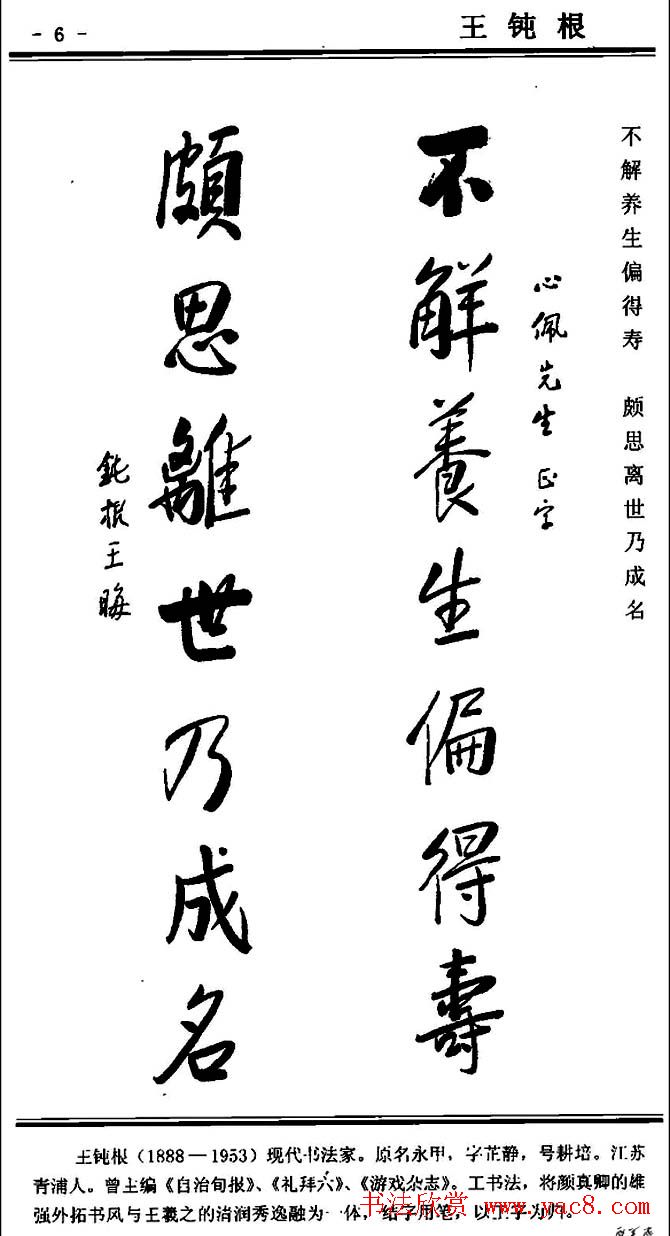 - 6 -
王钝根
不解养生偏得寿 颇思离世乃成名
心佩先生正字
不解養生偏得壽
頗思離世乃成名
鈍根王晦
王钝根(1888—1953)现代书法家。原名永甲,字芷静,号耕培。江苏
青浦人。曾主编《自治旬报》、《礼拜六》、《游戏杂志》。工书法,将颜真卿的雄
强外拓书风与王羲之的清润秀逸融为一体,结字用笔,以二王为师。
书法欣赏 www.yac8.com